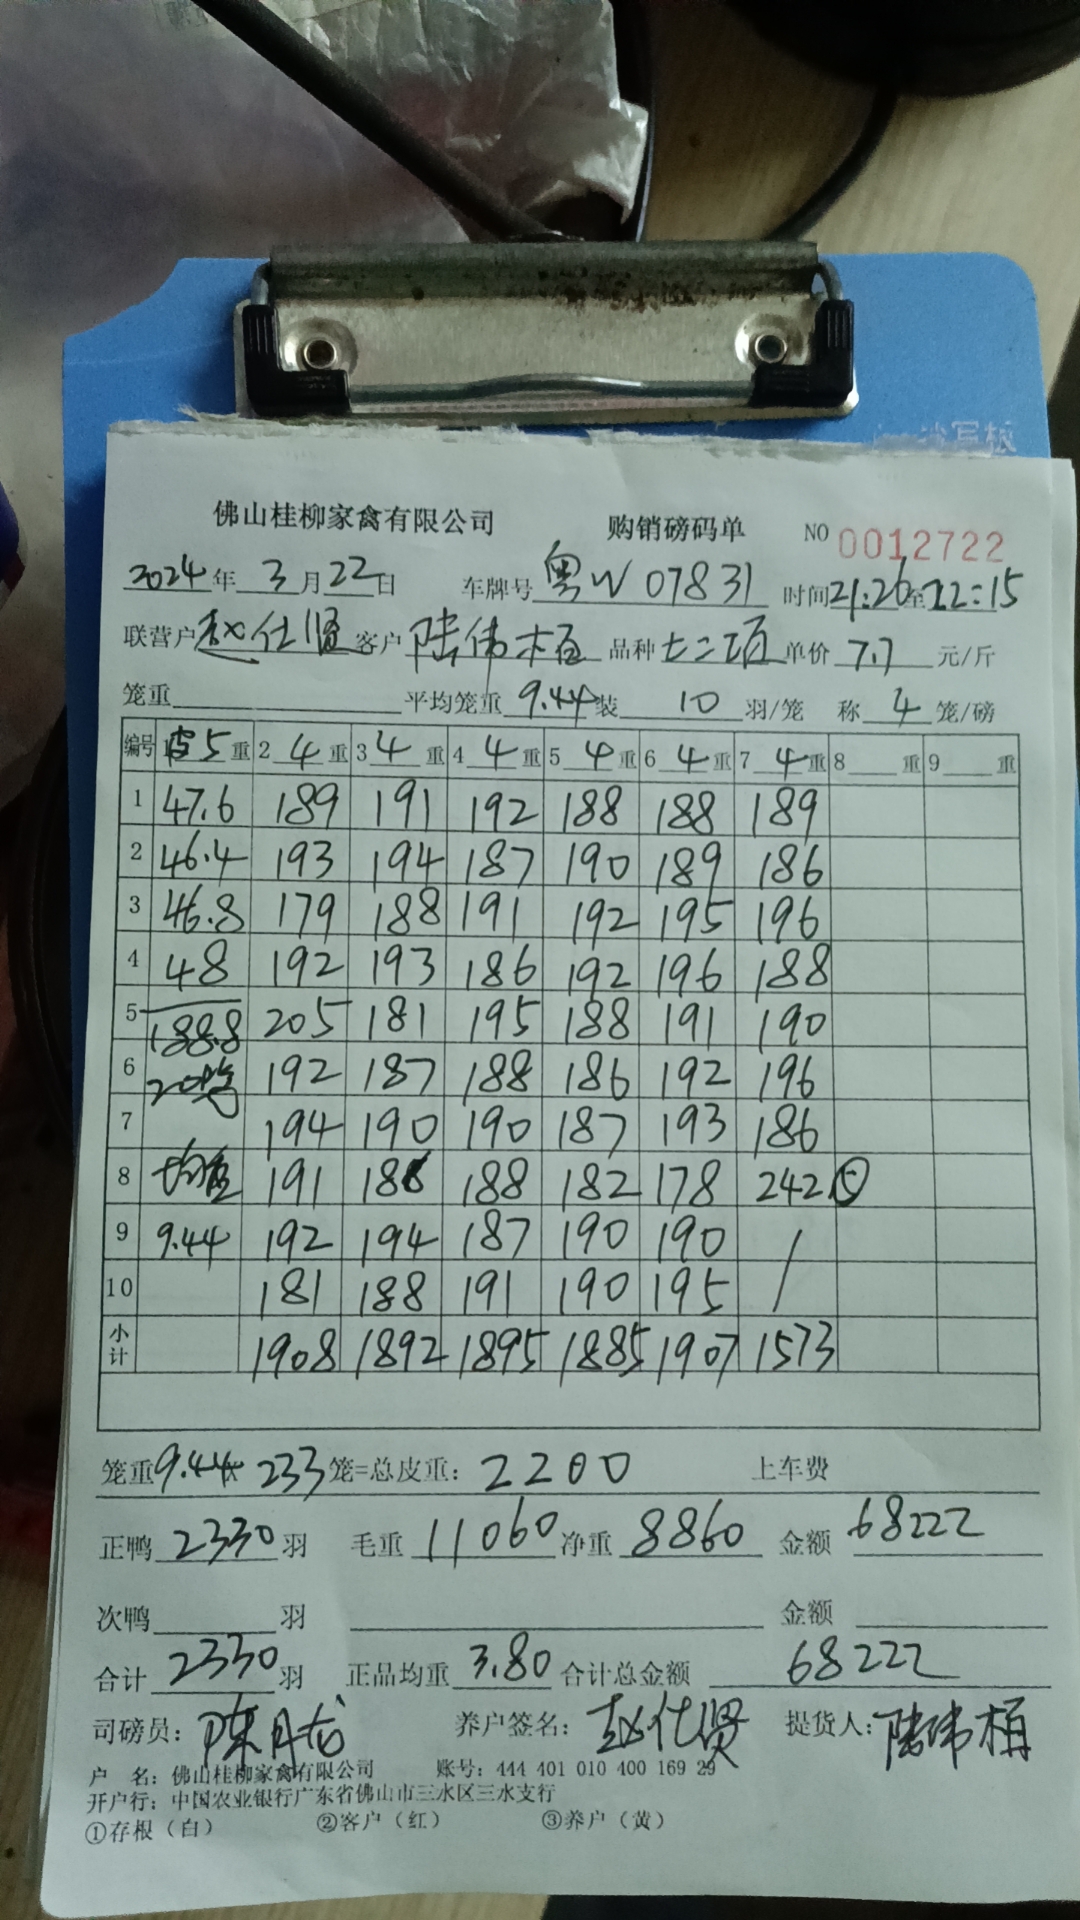 佛山桂柳家禽有限公司 购销磅码单 NO 0012722
2024年 3月22日 车牌号 粤W07831 时间21:26至22:15
联营户 赵仕贤 客户 陆伟桓 品种 七二项 单价 7.7 元/斤
笼重 平均笼重 9.44 装 10 羽/笼 称 4 笼/磅
编号 皮5重 2 4重 3 4重 4 4重 5 4重 6 4重 7 4重 8 重 9 重
1 47.6 189 191 192 188 188 189
2 46.4 193 194 187 190 189 186
3 46.8 179 188 191 192 195 196
4 48 192 193 186 192 196 188
5 188.8 205 181 195 188 191 190
6 20笼 192 187 188 186 192 196
7 194 190 190 187 193 186
8 均重 191 186 188 182 178 242 ⑤
9 9.44 192 194 187 190 190 /
10 181 188 191 190 195 /
小计 1908 1892 1895 1885 1907 1573
笼重9.44× 233笼=总皮重: 2200 上车费
正鸭 2330 羽 毛重 11060 净重 8860 金额 68222
次鸭 羽 金额
合计 2330 羽 正品均重 3.80 合计总金额 68222
司磅员: 陈月龙 养户签名: 赵仕贤 提货人:
户 名: 佛山桂柳家禽有限公司 账号: 444 401 010 400 169 29
开户行: 中国农业银行广东省佛山市三水区三水支行
①存根(白) ②客户(红) ③养户(黄)